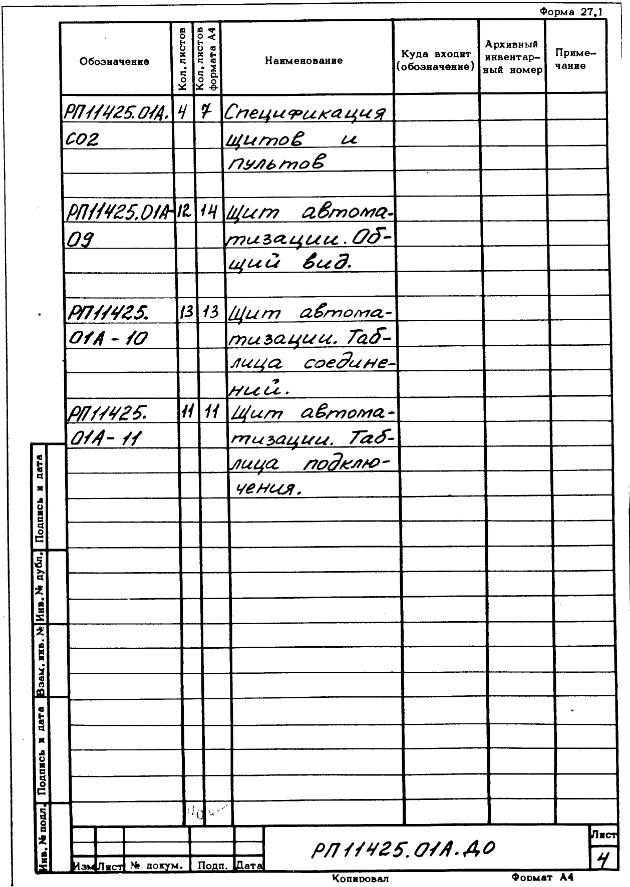 Форма 27.1
Обозначение Кол. листов Кол. листов формата А4 Наименование Куда входит (обозначение) Архивный инвентар-ный номер Приме-чание
РП11425.01А. 4 7 Спецификация
СО2 щитов и
пультов
РП11425.01А- 12 14 Щит автома-
09 тизации. Об-
щий вид.
РП11425. 13 13 Щит автома-
01А-10 тизации. Таб-
лица соедине-
ний.
РП11425. 11 11 Щит автома-
01А-11 тизации. Таб-
лица подклю-
чения.
Подпись и дата
Инв. № дубл.
Взам. инв. №
Подпись и дата
Инв. № подл.
Изм Лист № докум. Подп. Дата
РП11425.01А.ДО
Лист
4
Копировал Формат А4